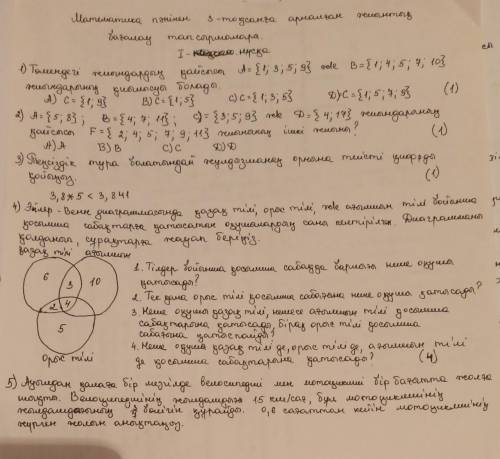 Математика пәнінен 3-тоқсанға арналған жиынтық
бағалау тапсырмалары.
I- нұсқа
1) Төмендегі жиындардың қайсысы A={1; 3; 5; 9} және B={1; 4; 5; 7; 10}
жиындарының қиылысуы болады.
A) C={1; 9} B) C={1; 5} C) C={1; 3; 5} D) C={1; 5; 7; 9} (1)
2) A={5; 8}; B={4; 7; 11}; C={3; 5; 9} және D={4; 17} жиындарының
қайсысы F={2; 4; 5; 7; 9; 11} жиынының ішкі жиыны? (1)
A) A B) B C) C D) D
3) Теңсіздік тура болатындай жұлдызшаның орнына тиісті цифрды
қойыңыз. (1)
3,8*5 < 3,841
4) Эйлер-Венн диаграммасында қазақ тілі, орыс тілі, және ағылшын тілі бойынша
қосымша сабақтарға қатысатын оқушылардың саны келтірілген. Диаграмманы
қолданып, сұрақтарға жауап беріңіз.
қазақ тілі ағылшын
6 3 10
2 4
5
Орыс тілі
1. Тілдер бойынша қосымша сабаққа барлығы неше оқушы
қатысады?
2. Тек қана орыс тілі қосымша сабағына неше оқушы қатысады?
3. Неше оқушы қазақ тілі, немесе ағылшын тілі қосымша
сабақтарына қатысады, бірақ орыс тілі қосымша
сабағына қатыспайды?
4. Неше оқушы қазақ тілі де, орыс тілі де, ағылшын тілі
де қосымша сабақтарына қатысады? (4)
5) Ауылдан қалаға бір мезгілде велосипедші мен мотоциклші бір бағытта жолға
шықты. Велосипедшінің жылдамдығы 15 км/сағ, бұл мотоциклшінің
жылдамдығының бөлігін құрайды. 0,6 сағаттан кейін мотоциклшінің
жүрген жолын анықтаңыз.